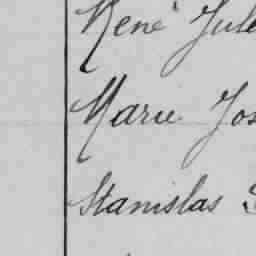 René Jule
Marie Jos
Stanislas